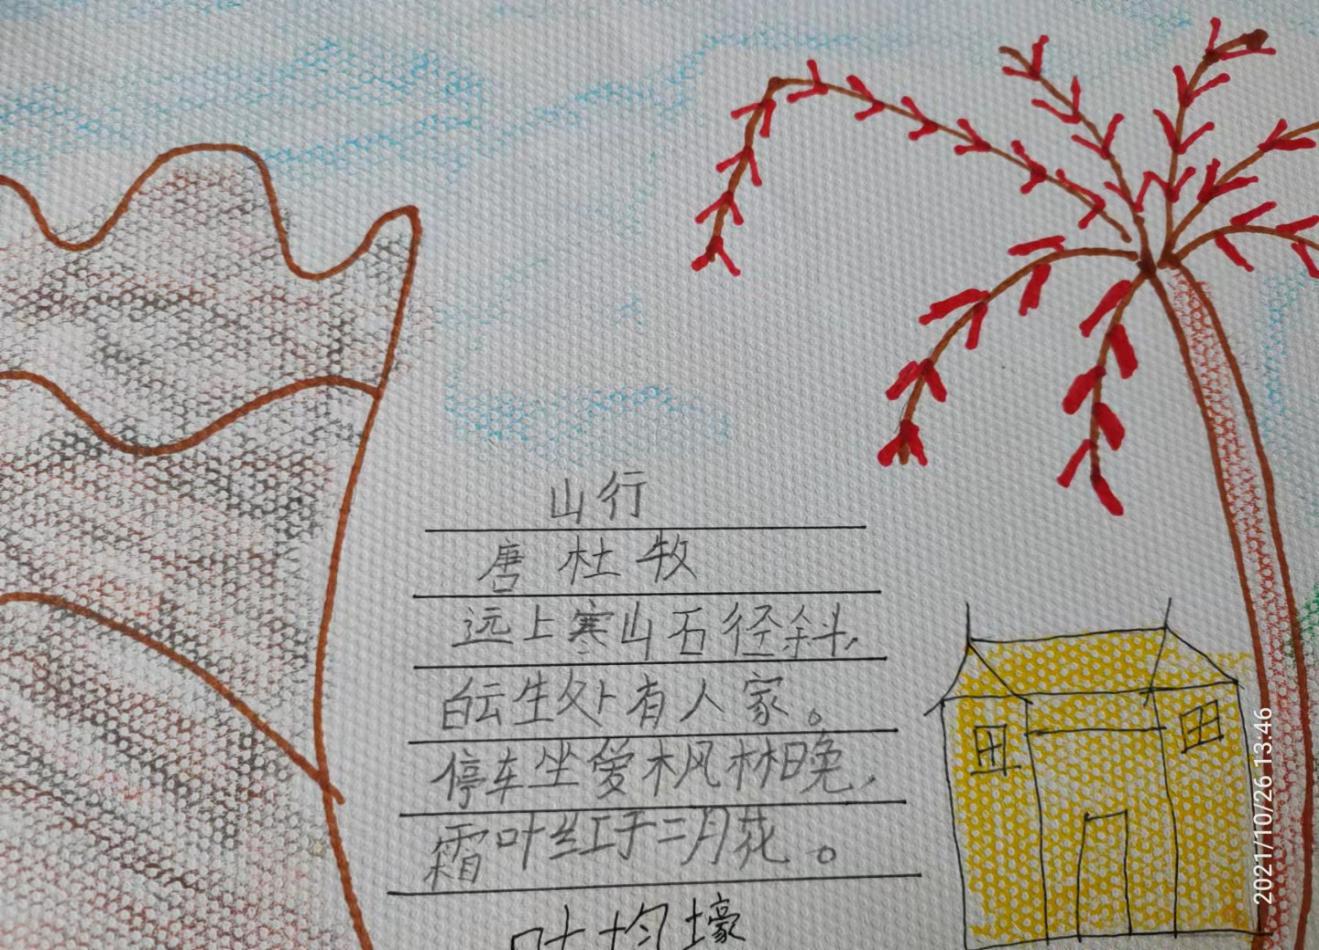 山行
唐 杜牧
远上寒山石径斜,
白云生处有人家。
停车坐爱枫林晚,
霜叶红于二月花。
叶均壕
2021/10/26 13:46